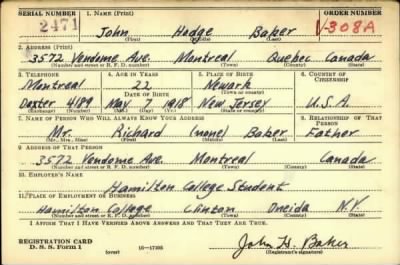 SERIAL NUMBER 1. NAME (Print) ORDER NUMBER
2471 John Hodge Baker V-308A
(First) (Middle) (Last)
2. ADDRESS (Print)
3572 Vendome Ave. Montreal Quebec Canada
(Number and street or R. F. D. number) (Town) (County) (State)
3. TELEPHONE 4. AGE IN YEARS 5. PLACE OF BIRTH 6. COUNTRY OF CITIZENSHIP
Montreal 22 Newark
DATE OF BIRTH (Town or county)
Dexter 4189 May 7 1918 New Jersey U.S.A.
(Exchange) (Number) (Mo.) (Day) (Yr.) (State or country)
7. NAME OF PERSON WHO WILL ALWAYS KNOW YOUR ADDRESS 8. RELATIONSHIP OF THAT PERSON
Mr. Richard (none) Baker Father
(Mr., Mrs., Miss) (First) (Middle) (Last)
9. ADDRESS OF THAT PERSON
3572 Vendome Ave. Montreal Canada
(Number and street or R. F. D. number) (Town) (County) (State)
10. EMPLOYER'S NAME
Hamilton College Student
11. PLACE OF EMPLOYMENT OR BUSINESS
Hamilton College Clinton Oneida N.Y.
(Number and street or R. F. D. number) (Town) (County) (State)
I AFFIRM THAT I HAVE VERIFIED ABOVE ANSWERS AND THAT THEY ARE TRUE.
REGISTRATION CARD
D. S. S. Form 1 (over) 16-17105 John H. Baker
(Registrant's signature)